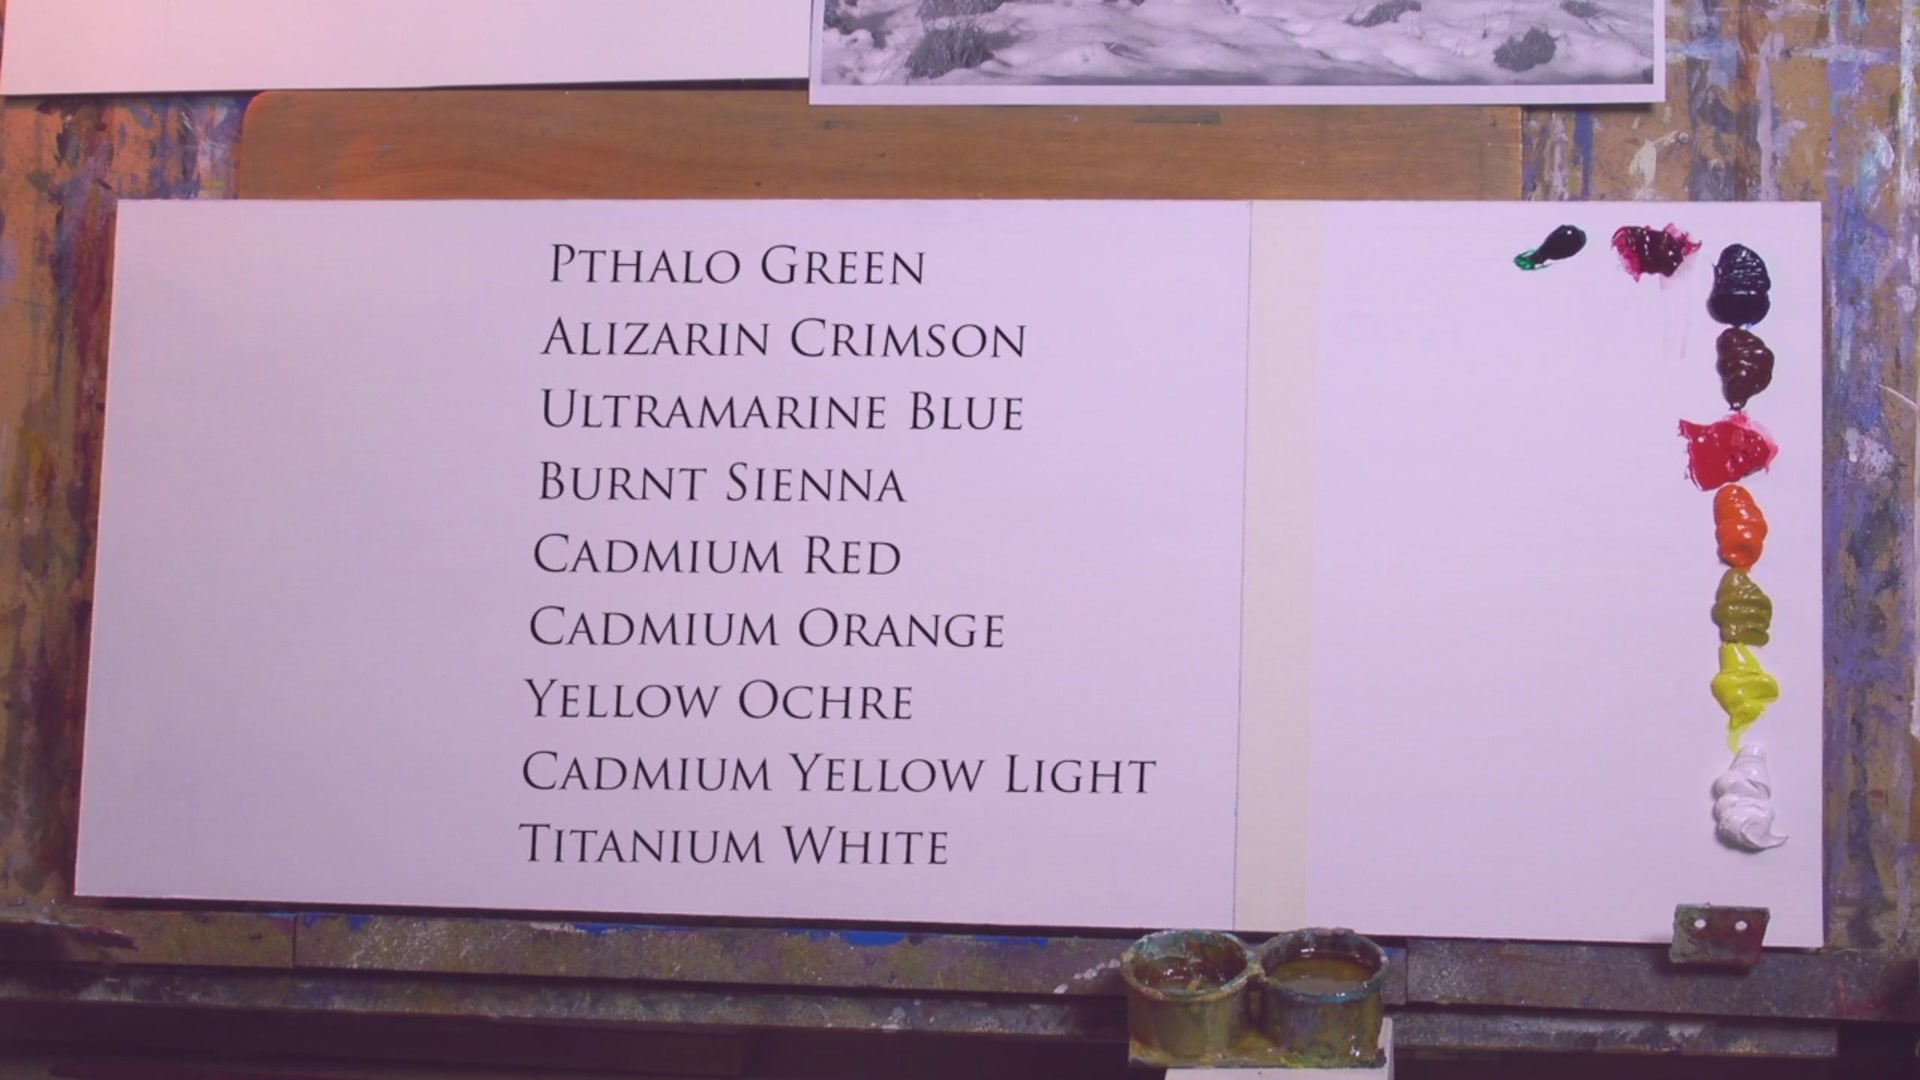 Pthalo Green
Alizarin Crimson
Ultramarine Blue
Burnt Sienna
Cadmium Red
Cadmium Orange
Yellow Ochre
Cadmium Yellow Light
Titanium White